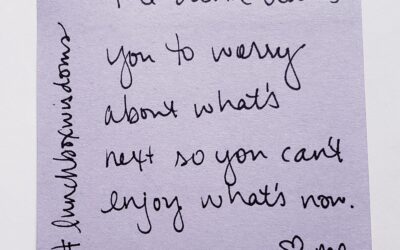 you to worry
about what's
next so you can't
enjoy what's now.
#lunchboxwisdoms